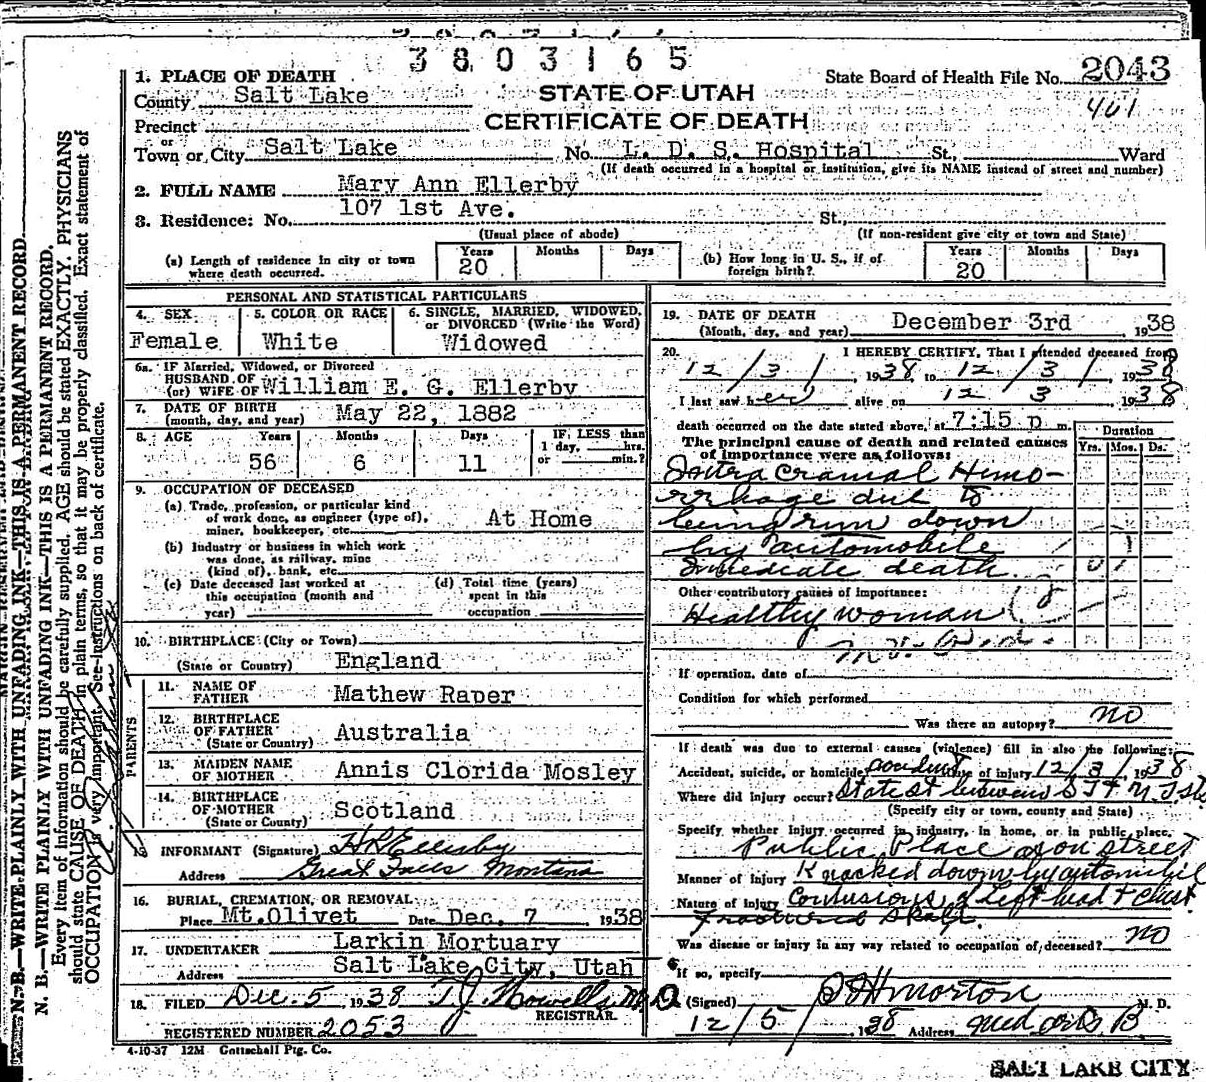 3803165
1. PLACE OF DEATH
State Board of Health File No. 2043
County Salt Lake
STATE OF UTAH
461
Precinct
CERTIFICATE OF DEATH
or
Town or City Salt Lake No. L. D. S. Hospital St., Ward
(If death occurred in a hospital or institution, give its NAME instead of street and number)
2. FULL NAME Mary Ann Ellerby
3. Residence: No. 107 1st Ave. St.,
(Usual place of abode) (If non-resident give city or town and State)
(a) Length of residence in city or town where death occurred. Years 20 Months Days
(b) How long in U. S., if of foreign birth? Years 20 Months Days
PERSONAL AND STATISTICAL PARTICULARS
4. SEX Female
5. COLOR OR RACE White
6. SINGLE, MARRIED, WIDOWED, or DIVORCED (Write the Word) Widowed
6a. IF Married, Widowed, or Divorced
HUSBAND OF
(or) WIFE OF William E. G. Ellerby
7. DATE OF BIRTH
(month, day, and year) May 22, 1882
8. AGE Years 56 Months 6 Days 11 IF LESS than 1 day, hrs. or min.?
9. OCCUPATION OF DECEASED
(a) Trade, profession, or particular kind
of work done, as engineer (type of),
miner, bookkeeper, etc. At Home
(b) Industry or business in which work
was done, as railway, mine
(kind of), bank, etc.
(c) Date deceased last worked at
this occupation (month and
year)
(d) Total time (years)
spent in this
occupation
10. BIRTHPLACE (City or Town)
(State or Country) England
PARENTS
11. NAME OF
FATHER Mathew Raper
12. BIRTHPLACE
OF FATHER
(State or Country) Australia
13. MAIDEN NAME
OF MOTHER Annis Clorida Mosley
14. BIRTHPLACE
OF MOTHER
(State or Country) Scotland
15 INFORMANT (Signature) H R Ellerby
Address Great Falls Montana
16. BURIAL, CREMATION, OR REMOVAL
Place Mt. Olivet Date Dec. 7 1938
17. UNDERTAKER Larkin Mortuary
Address Salt Lake City, Utah
18. FILED Dec. 5, 1938 T J Howells M.D.
REGISTRAR.
REGISTERED NUMBER 2053
4-10-37 12M Gottschall Ptg. Co.
19. DATE OF DEATH
(Month, day, and year) December 3rd 1938
20. I HEREBY CERTIFY, That I attended deceased from
12/3/, 1938 to 12/3/, 1938
I last saw her alive on 12 3 1938
death occurred on the date stated above, at 7:15 p m.
The principal cause of death and related causes
of importance were as follows:
Duration
Yrs. Mos. Ds.
Intra Cranial Hemo-
rrhage due to
being run down
by automobile
Immediate death
Other contributory causes of importance:
Healthy woman
If operation, date of
Condition for which performed
Was there an autopsy? no
If death was due to external causes (violence) fill in also the following:
Accident, suicide, or homicide accident Date of injury 12/3/1938
Where did injury occur? State st between S T & N T sts
(Specify city or town, county and State)
Specify whether injury occurred in industry, in home, or in public place.
Public Place as on street
Manner of injury Knocked down by automobile
Nature of injury Contusions of left head & chest
Fractured Skull.
Was disease or injury in any way related to occupation of deceased? no
If so, specify
(Signed) Morton M. D.
12/5/, 1938 Address
SALT LAKE CITY
N. B.—WRITE PLAINLY WITH UNFADING INK—THIS IS A PERMANENT RECORD.
N. B.—WRITE PLAINLY WITH UNFADING INK—THIS IS A PERMANENT RECORD.
Every item of information should be carefully supplied. AGE should be stated EXACTLY. PHYSICIANS
should state CAUSE OF DEATH in plain terms, so that it may be properly classified. Exact statement of
OCCUPATION is very important. See instructions on back of certificate.